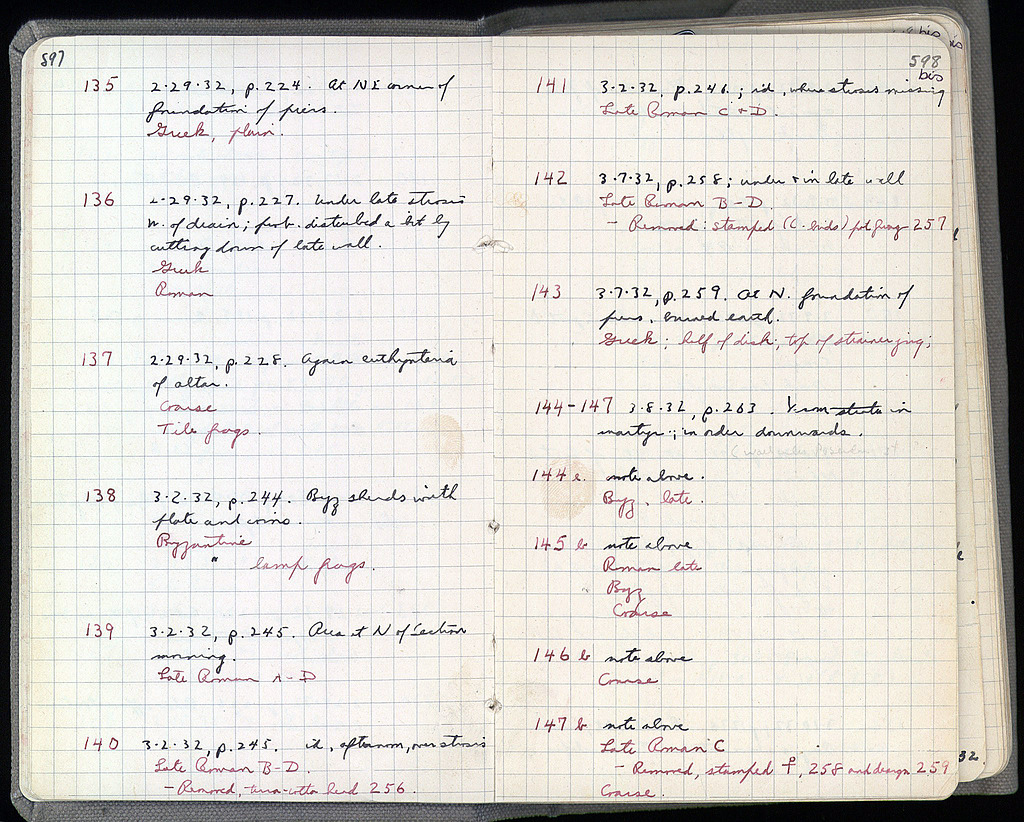 597
135 2-29-32, p.224. At NE corner of
foundation of piers.
Greek, plain.
136 2-29-32, p.227. Under late strosis
W. of drain; prob. disturbed a bit by
cutting down of late wall.
Greek
Roman
137 2-29-32, p.228. Again euthynteria
of altar.
Coarse
Tile frags.
138 3-2-32, p.244. Byz sherds with
plate and coins.
Byzantine
" lamp frags.
139 3-2-32, p.245. Area at N of Section
morning.
Late Roman A-D
140 3-2-32, p.245. id, afternoon, over strosis
Late Roman B-D.
- Removed, terra-cotta head 256.
598
bis
141 3-2-32, p.246.; id, where strosis missing
Late Roman C + D.
142 3-7-32, p.258; under + in late wall
Late Roman B-D.
- Removed: stamped (C. birds) pot frag 257
143 3-7-32, p.259. At N. foundation of
piers, burned earth.
Greek: half of disk; top of strainer jug;
144-147 3-8-32, p.263. From strata in
martyr.; in order downwards.
144 a. note above.
Byz. late.
145 b note above
Roman late
Byz
Coarse
146 b note above
Coarse
147 b note above
Late Roman C
- Removed, stamped, 258 and design 259
Coarse.
32.